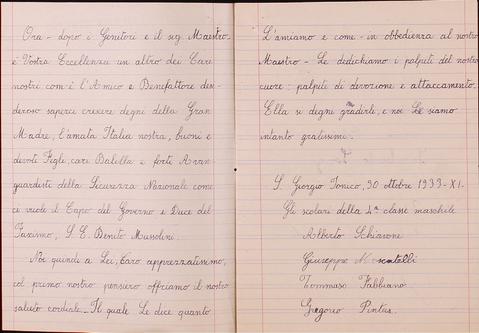 Ora - dopo i Genitori e il sig. Maestro-
è Vostra Eccellenza un altro dei Cari
nostri com'è l'Amico e Benefattore desi-
deroso saperci crescere degni della Gran
Madre, l'amata Italia nostra, buoni e
devoti Figli, cari Balilla e forte Avan
guardisti della Sicurezza Nazionale come
ci vuole il Capo del Governo e Duce del
Fascismo, S. E. Benito Mussolini.
Noi quindi a Lei, Caro apprezzatissimo,
col primo nostro pensiero offriamo il nostro
saluto cordiale - Il quale Le dice quanto
L'amiamo e come - in obbedienza al nostro
Maestro - Le dedichiamo i palpiti del nostro
cuore: palpiti di devozione e attaccamento.
Ella si degni gradirli, e noi Le siamo
intanto gratissimi.
S. Giorgio Jonico, 30 ottobre 1933-XI.
Gli scolari della 4a classe maschile
Alberto Schiavone
Giuseppe
Tommaso Fabbiano
Gregorio Pintus